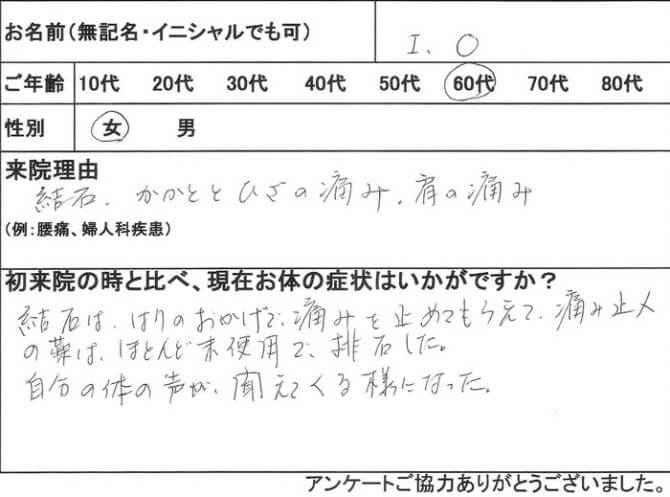 お名前(無記名・イニシャルでも可) I. O
ご年齢 10代 20代 30代 40代 50代 60代 70代 80代
性別 女 男
来院理由
結石、かかととひざの痛み、肩の痛み
(例:腰痛、婦人科疾患)
初来院の時と比べ、現在お体の症状はいかがですか?
結石は、はりのおかげで、痛みを止めてもらえて、痛み止人
の薬は、ほとんど未使用で、排石した。
自分の体の声が、聞えてくる様になった。
アンケートご協力ありがとうございました。